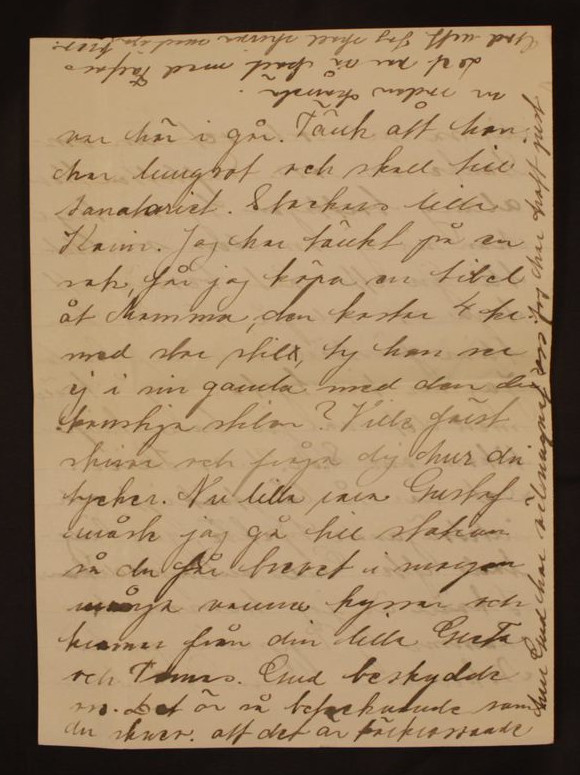 var här i går. Tänk att han
har lungsot och skall till
sanatoriet. Stackars lilla
Karin. Jag har tänkt på en
sak, får jag köpa en bibel
åt Mamma, den kostar 4 kr.
med stor stil, ty hon ser
ej i sin gamla med den
stilen? Ville först
skriva och fråga dig hur du
tycker. Nu lilla Gustaf
måste jag gå till station
så du får brevet i morgon
många varma kyssar och
kramar från din lilla Greta
och Tomas. Gud beskydde
oss. Det är så som
du skrev. att det är
hur Gud har välsignat oss jag har haft just
en sedan
det med Tage
Gud vett jag skall skriva